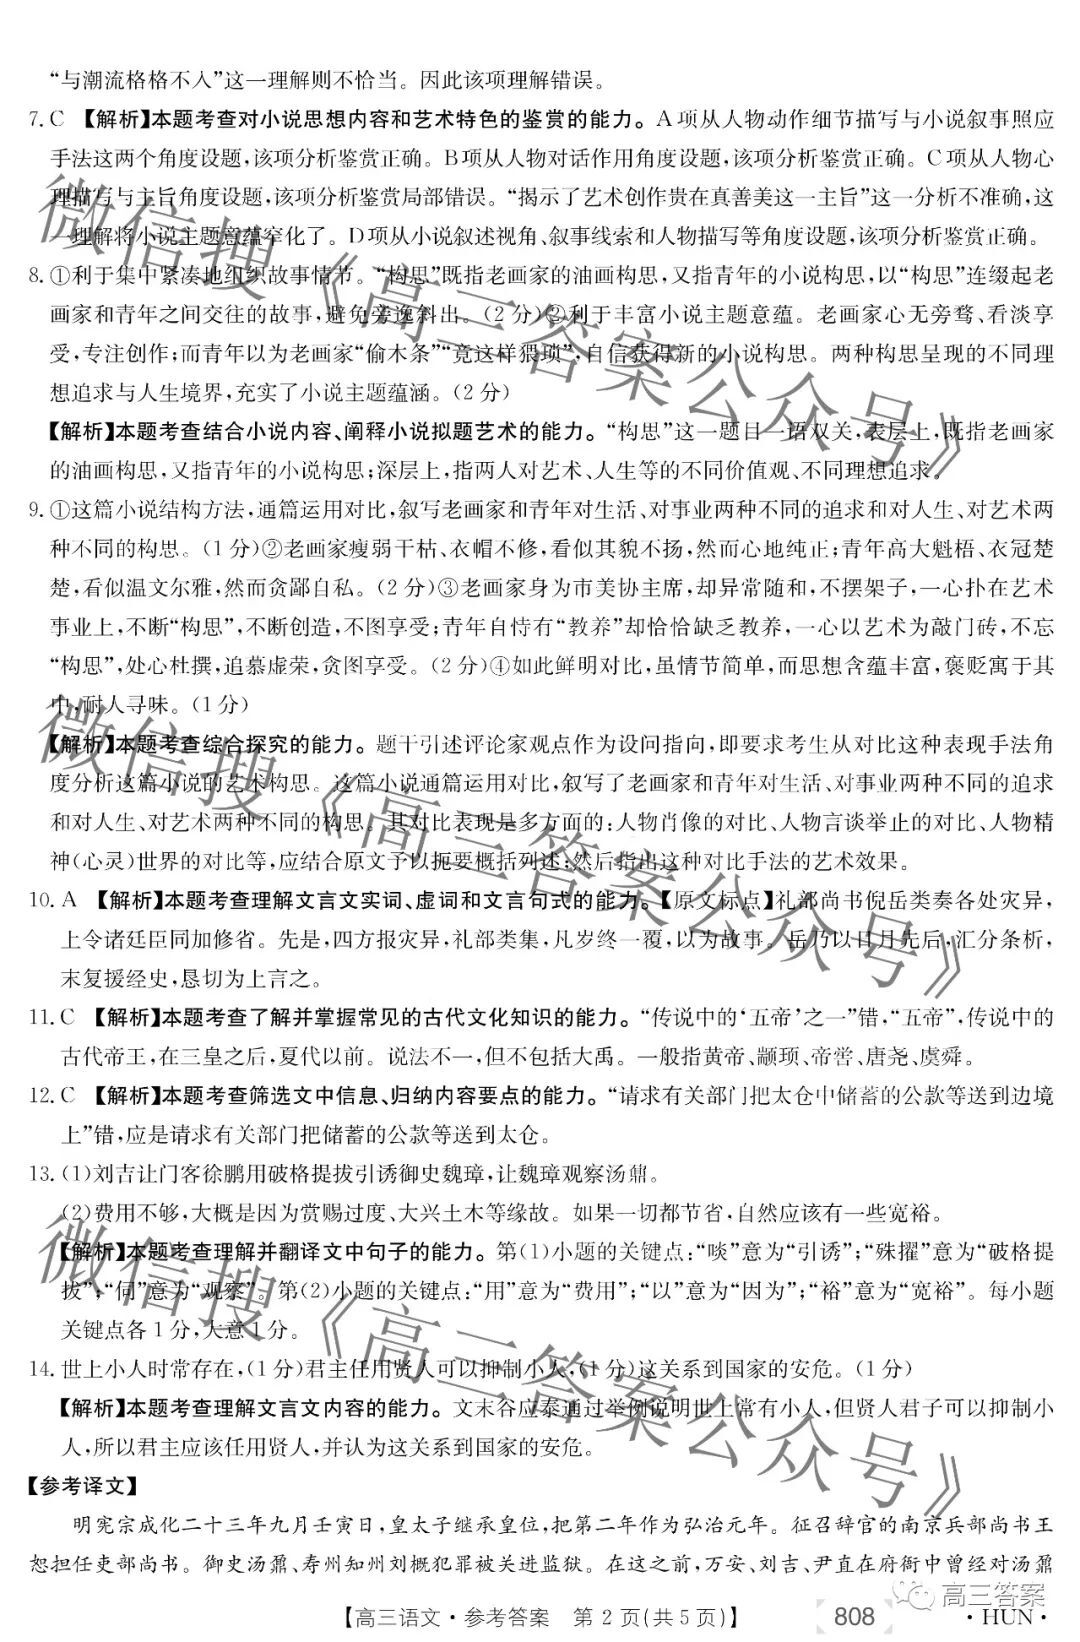 “与潮流格格不入”这一理解则不恰当。因此该项理解错误。
7. C 【解析】本题考查对小说思想内容和艺术特色的鉴赏的能力。A项从人物动作细节描写与小说叙事照应
手法这两个角度设题,该项分析鉴赏正确。B项从人物对话作用角度设题,该项分析鉴赏正确。C项从人物心
理描写与主旨角度设题,该项分析鉴赏局部错误。“揭示了艺术创作贵在真善美这一主旨”这一分析不准确,这
一理解将小说主题意蕴窄化了。D项从小说叙述视角、叙事线索和人物描写等角度设题,该项分析鉴赏正确。
8. ①利于集中紧凑地组织故事情节。“构思”既指老画家的油画构思,又指青年的小说构思,以“构思”连缀起老
画家和青年之间交往的故事,避免旁逸斜出。(2分)②利于丰富小说主题意蕴。老画家心无旁骛、看淡享
受,专注创作;而青年以为老画家“偷木条”“竟这样猥琐”,自信获得新的小说构思。两种构思呈现的不同理
想追求与人生境界,充实了小说主题蕴涵。(2分)
【解析】本题考查结合小说内容、阐释小说拟题艺术的能力。“构思”这一题目一语双关,表层上,既指老画家
的油画构思,又指青年的小说构思;深层上,指两人对艺术、人生等的不同价值观、不同理想追求。
9. ①这篇小说结构方法,通篇运用对比,叙写老画家和青年对生活、对事业两种不同的追求和对人生、对艺术两
种不同的构思。(1分)②老画家瘦弱干枯、衣帽不修,看似其貌不扬,然而心地纯正;青年高大魁梧、衣冠楚
楚,看似温文尔雅,然而贪鄙自私。(2分)③老画家身为市美协主席,却异常随和,不摆架子,一心扑在艺术
事业上,不断“构思”,不断创造,不图享受;青年自恃有“教养”却恰恰缺乏教养,一心以艺术为敲门砖,不忘
“构思”,处心杜撰,追慕虚荣,贪图享受。(2分)④如此鲜明对比,虽情节简单,而思想含蕴丰富,褒贬寓于其
中,耐人寻味。(1分)
【解析】本题考查综合探究的能力。题干引述评论家观点作为设问指向,即要求考生从对比这种表现手法角
度分析这篇小说的艺术构思。这篇小说通篇运用对比,叙写了老画家和青年对生活、对事业两种不同的追求
和对人生、对艺术两种不同的构思。其对比表现是多方面的:人物肖像的对比、人物言谈举止的对比、人物精
神(心灵)世界的对比等,应结合原文予以扼要概括列述;然后指出这种对比手法的艺术效果。
10. A 【解析】本题考查理解文言文实词、虚词和文言句式的能力。【原文标点】礼部尚书倪岳类奏各处灾异,
上令诸廷臣同加修省。先是,四方报灾异,礼部类集,凡岁终一覆,以为故事。岳乃以日月先后,汇分条析,
末复援经史,恳切为上言之。
11. C 【解析】本题考查了解并掌握常见的古代文化知识的能力。“传说中的‘五帝’之一”错,“五帝”,传说中的
古代帝王,在三皇之后,夏代以前。说法不一,但不包括大禹。一般指黄帝、颛顼、帝喾、唐尧、虞舜。
12. C 【解析】本题考查筛选文中信息、归纳内容要点的能力。“请求有关部门把太仓中储蓄的公款等送到边境
上”错,应是请求有关部门把储蓄的公款等送到太仓。
13. (1)刘吉让门客徐鹏用破格提拔引诱御史魏璋,让魏璋观察汤鼐。
(2)费用不够,大概是因为赏赐过度、大兴土木等缘故。如果一切都节省,自然应该有一些宽裕。
【解析】本题考查理解并翻译文中句子的能力。第(1)小题的关键点:“啖”意为“引诱”;“殊擢”意为“破格提
拔”;“伺”意为“观察”。第(2)小题的关键点:“用”意为“费用”;“以”意为“因为”;“裕”意为“宽裕”。每小题
关键点各1分,大意1分。
14. 世上小人时常存在,(1分)君主任用贤人可以抑制小人,(1分)这关系到国家的安危。(1分)
【解析】本题考查理解文言文内容的能力。文末谷应泰通过举例说明世上常有小人,但贤人君子可以抑制小
人,所以君主应该任用贤人,并认为这关系到国家的安危。
【参考译文】
明宪宗成化二十三年九月壬寅日,皇太子继承皇位,把第二年作为弘治元年。征召辞官的南京兵部尚书王
恕担任吏部尚书。御史汤鼐、寿州知州刘概犯罪被关进监狱。在这之前,万安、刘吉、尹直在府衙中曾经对汤鼐
【高三语文·参考答案 第2页(共5页)】 808 ·HUN·
微信搜《高三答案公众号》
微信搜《高三答案公众号》
微信搜《高三答案公众号》
高三答案